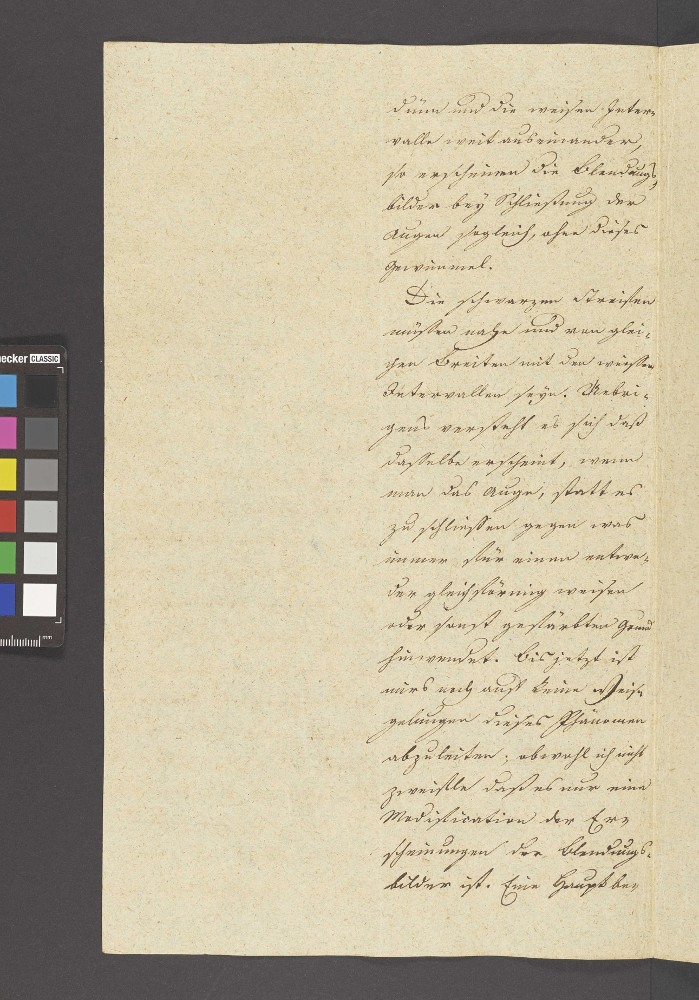 dünn und die weisen Inter-
valle weit auseinander,
so erscheinen die Blendungs-
bilder bey Schließung der
Augen sogleich, ohne dieses
Gewimmel.
Die schwarzen Streifen
müssen nahe und von glei-
chen Breiten mit den weissen
Intervallen seyn. Uebri-
gens versteht es sich daß
dasselbe erscheint, wenn
man das Auge, statt es
zu schliessen gegen was
immer für einen entwe-
der gleichförmig weisen
oder sonst gefärbten Grund
hinwendet. Bis jetzt ist
mirs noch auf keine Weise
gelungen dieses Phänomen
abzuleiten; obwohl ich nicht
zweifle daß es nur eine
Modification der Er-
scheinungen der Blendungs-
bilder ist. Eine Hauptbe-
CLASSIC
mm